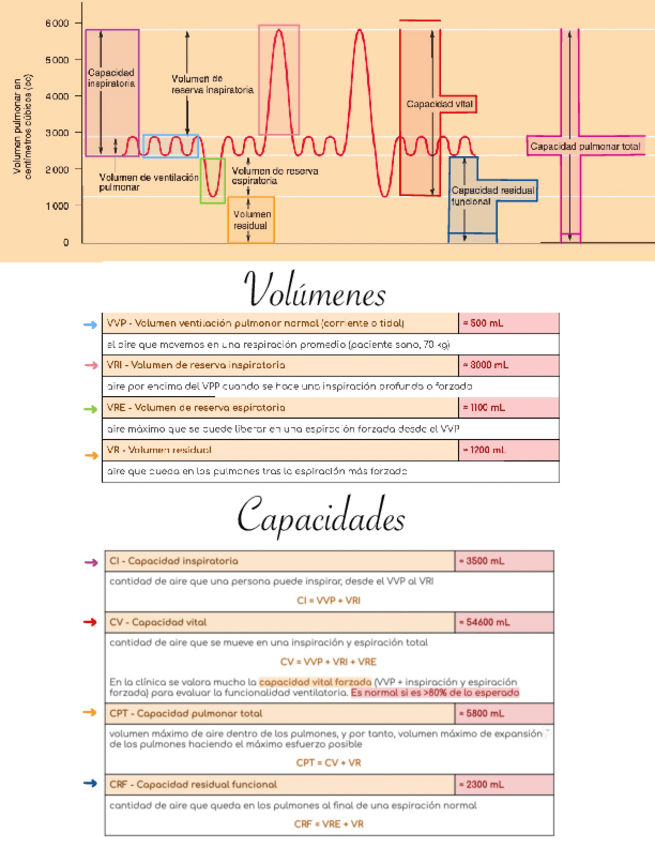 Volumen pulmonar en
centímetros cúbicos (cc)
6000
5000
4000
3000
2000
1000
0
Capacidad
inspiratoria
Volumen de
reserva inspiratoria
Capacidad vital
Capacidad pulmonar total
Volumen de ventilación
pulmonar
Volumen de reserva
espiratoria
Volumen
residual
Capacidad residual
funcional
Volúmenes
VVP - Volumen ventilación pulmonar normal (corriente o tidal) = 500 mL
el aire que movemos en una respiración promedio (paciente sano, 70 kg)
VRI - Volumen de reserva inspiratoria = 3000 mL
aire por encima del VPP cuando se hace una inspiración profunda o forzada
VRE - Volumen de reserva espiratoria = 1100 mL
aire máximo que se puede liberar en una espiración forzada desde el VVP
VR - Volumen residual = 1200 mL
aire que queda en los pulmones tras la espiración más forzada
Capacidades
CI - Capacidad inspiratoria = 3500 mL
cantidad de aire que una persona puede inspirar, desde el VVP al VRI
CI = VVP + VRI
CV - Capacidad vital = 54600 mL
cantidad de aire que se mueve en una inspiración y espiración total
CV = VVP + VRI + VRE
En la clínica se valora mucho la capacidad vital forzada (VVP + inspiración y espiración
forzada) para evaluar la funcionalidad ventilatoria. Es normal si es >80% de lo esperado
CPT - Capacidad pulmonar total = 5800 mL
volumen máximo de aire dentro de los pulmones, y por tanto, volumen máximo de expansión
de los pulmones haciendo el máximo esfuerzo posible
CPT = CV + VR
CRF - Capacidad residual funcional = 2300 mL
cantidad de aire que queda en los pulmones al final de una espiración normal
CRF = VRE + VR